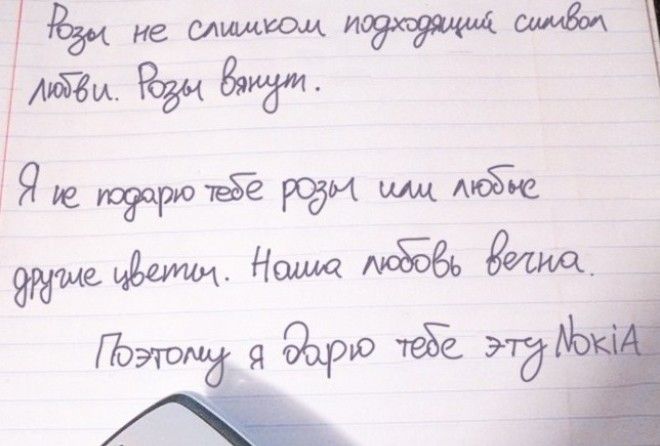 Розы не слишком подходящий символ
любви. Розы вянут.
Я не подарю тебе розы или любые
другие цветы. Наша любовь вечна.
Поэтому я дарю тебе эту NokiA